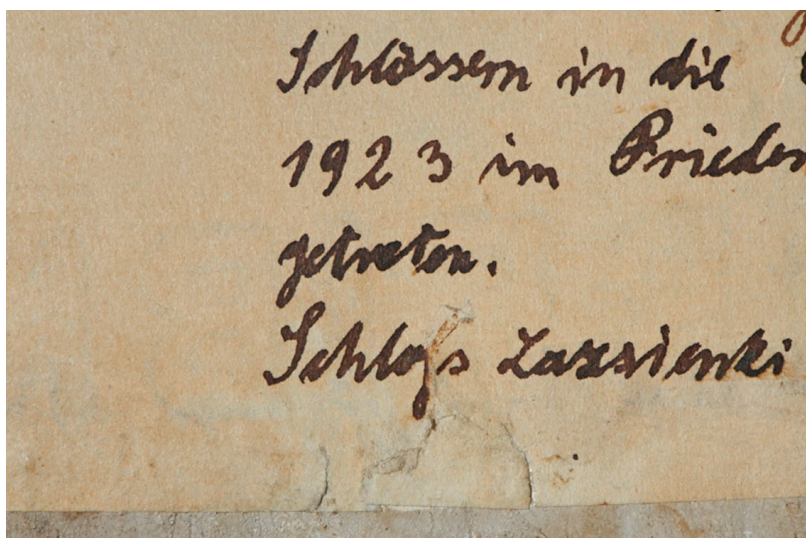 Schlössern in die
1923 im Frieden
getreten.
Schloſs Lazsienki